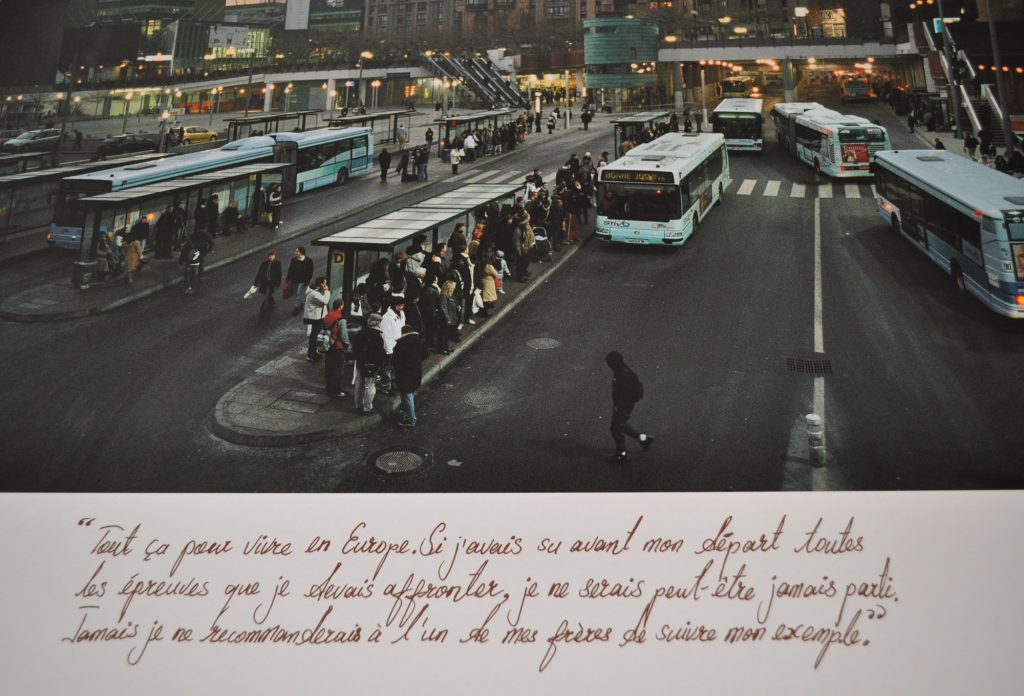 BONNE JOURNEE
STIVO
D
"Tout ça pour vivre en Europe. Si j'avais su avant mon départ toutes
les épreuves que je devais affronter, je ne serais peut-être jamais parti.
Jamais je ne recommanderais à l'un de mes frères de suivre mon exemple."